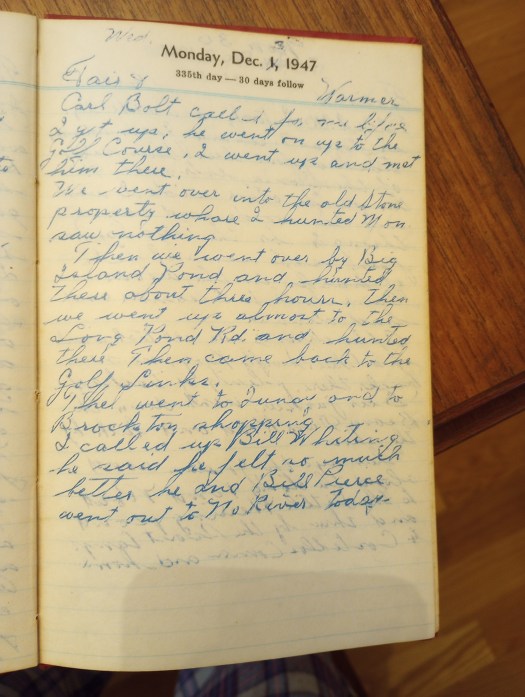 Wed. 3
Monday, Dec. 1, 1947
335th day — 30 days follow
Fair Warmer
Carl Bolt called for me before
I got up, he went on up to the
Golf Course, I went up and met
him there.
We went over into the old Stone
property whare I hunted Mon
saw nothing
Then we went over by Big
Island Pond and hunted
there about three hours, then
we went up almost to the
Long Pond Rd. and hunted
there Then came back to the
Golf Links.
Then went to and to
Brockton shopping
I called up Bill Whiting
he said he felt so much
better he and Bill Pierce
went out to No River today